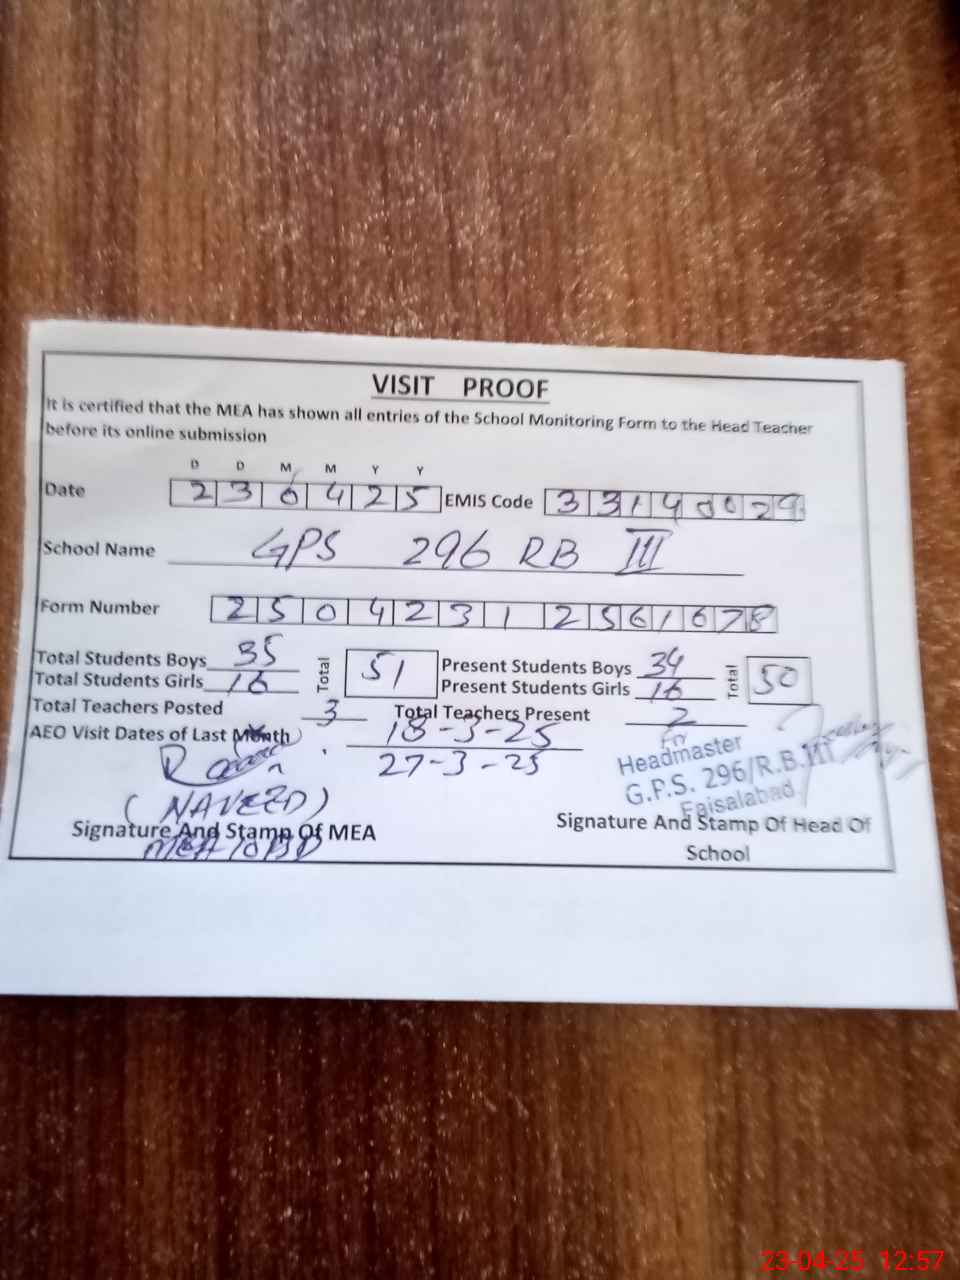 VISIT PROOF
It is certified that the MEA has shown all entries of the School Monitoring Form to the Head Teacher
before its online submission
D D M M Y Y
Date 2 3 0 4 2 5 EMIS Code 3 3 1 4 0 0 2 9
School Name GPS 296 RB III
Form Number 2 5 0 4 2 3 1 2 5 6 1 6 7 8
Total Students Boys 35 Total 51 Present Students Boys 34 Total 50
Total Students Girls 16 Present Students Girls 16
Total Teachers Posted 3 Total Teachers Present 2
AEO Visit Dates of Last Month 18-3-25
27-3-25
Headmaster
G.P.S. 296/R.B.III
Faisalabad
(NAVEED)
Signature And Stamp Of MEA Signature And Stamp Of Head Of
School
23-04-25 12:57